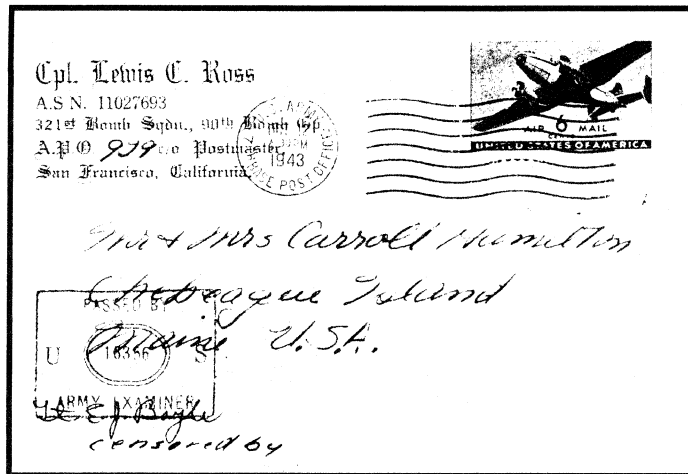 Cpl. Lewis C. Ross
A.S N. 11027693
321st Bomb Sqdn., 90th Bomb Gp.
A.P O 929 c/o Postmaster
San Francisco, California
U.S. ARMY
1943
POST OFFICE
AIR 6 MAIL
CENTS
UNITED STATES OF AMERICA
Mr & Mrs Carroll Hamilton
Chebeague Island
Maine U.S.A.
PASSED BY
U 16356 S
ARMY EXAMINER
Lt E J Boyle
censored by